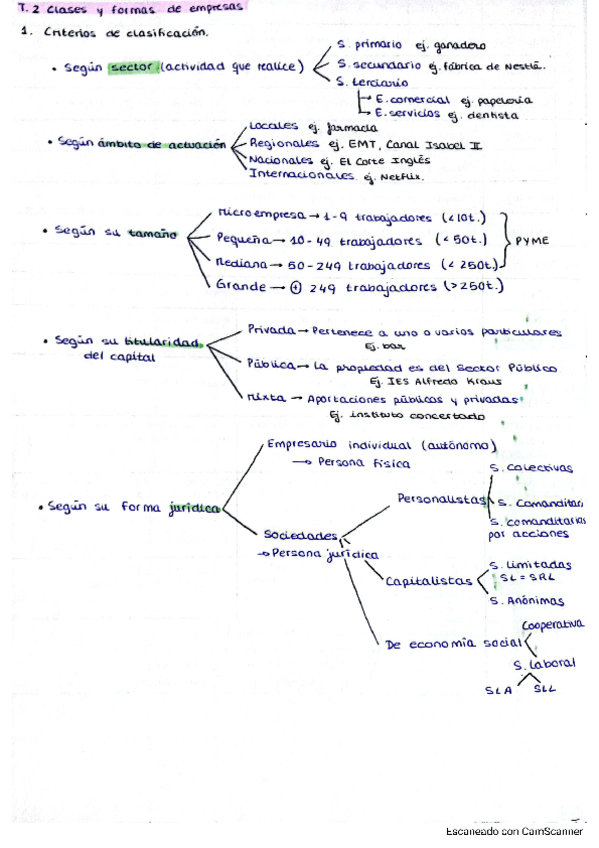 T. 2 Clases y formas de empresas
1. Criterios de clasificación.
• Según sector (actividad que realice)
S. primario ej. ganadero
S. secundario ej. fábrica de Nestlé.
S. terciario
E. comercial ej. papelería
E. servicios ej. dentista
• Según ámbito de actuación
Locales ej. farmacia
Regionales ej. EMT, Canal Isabel II
Nacionales ej. El Corte Inglés
Internacionales ej. Netflix.
• Según su tamaño
Microempresa → 1-9 trabajadores (<10t.)
Pequeña → 10-49 trabajadores (<50t.)
Mediana → 50-249 trabajadores (<250t.)
PYME
Grande → + 249 trabajadores (>250t.)
• Según su titularidad
del capital
Privada → Pertenece a uno o varios particulares
Ej. bar
Pública → La propiedad es del Sector Público
Ej. IES Alfredo Kraus
Mixta → Aportaciones públicas y privadas
Ej. instituto concertado
• Según su forma jurídica
Empresario individual (autónomo)
→ Persona física
Sociedades
→ Persona jurídica
Personalistas
S. Colectivas
S. Comanditari
S. comanditarias
por acciones
Capitalistas
S. Limitadas
SL = SRL
S. Anónimas
De economía social
Cooperativa
S. Laboral
SLA SLL
Escaneado con CamScanner